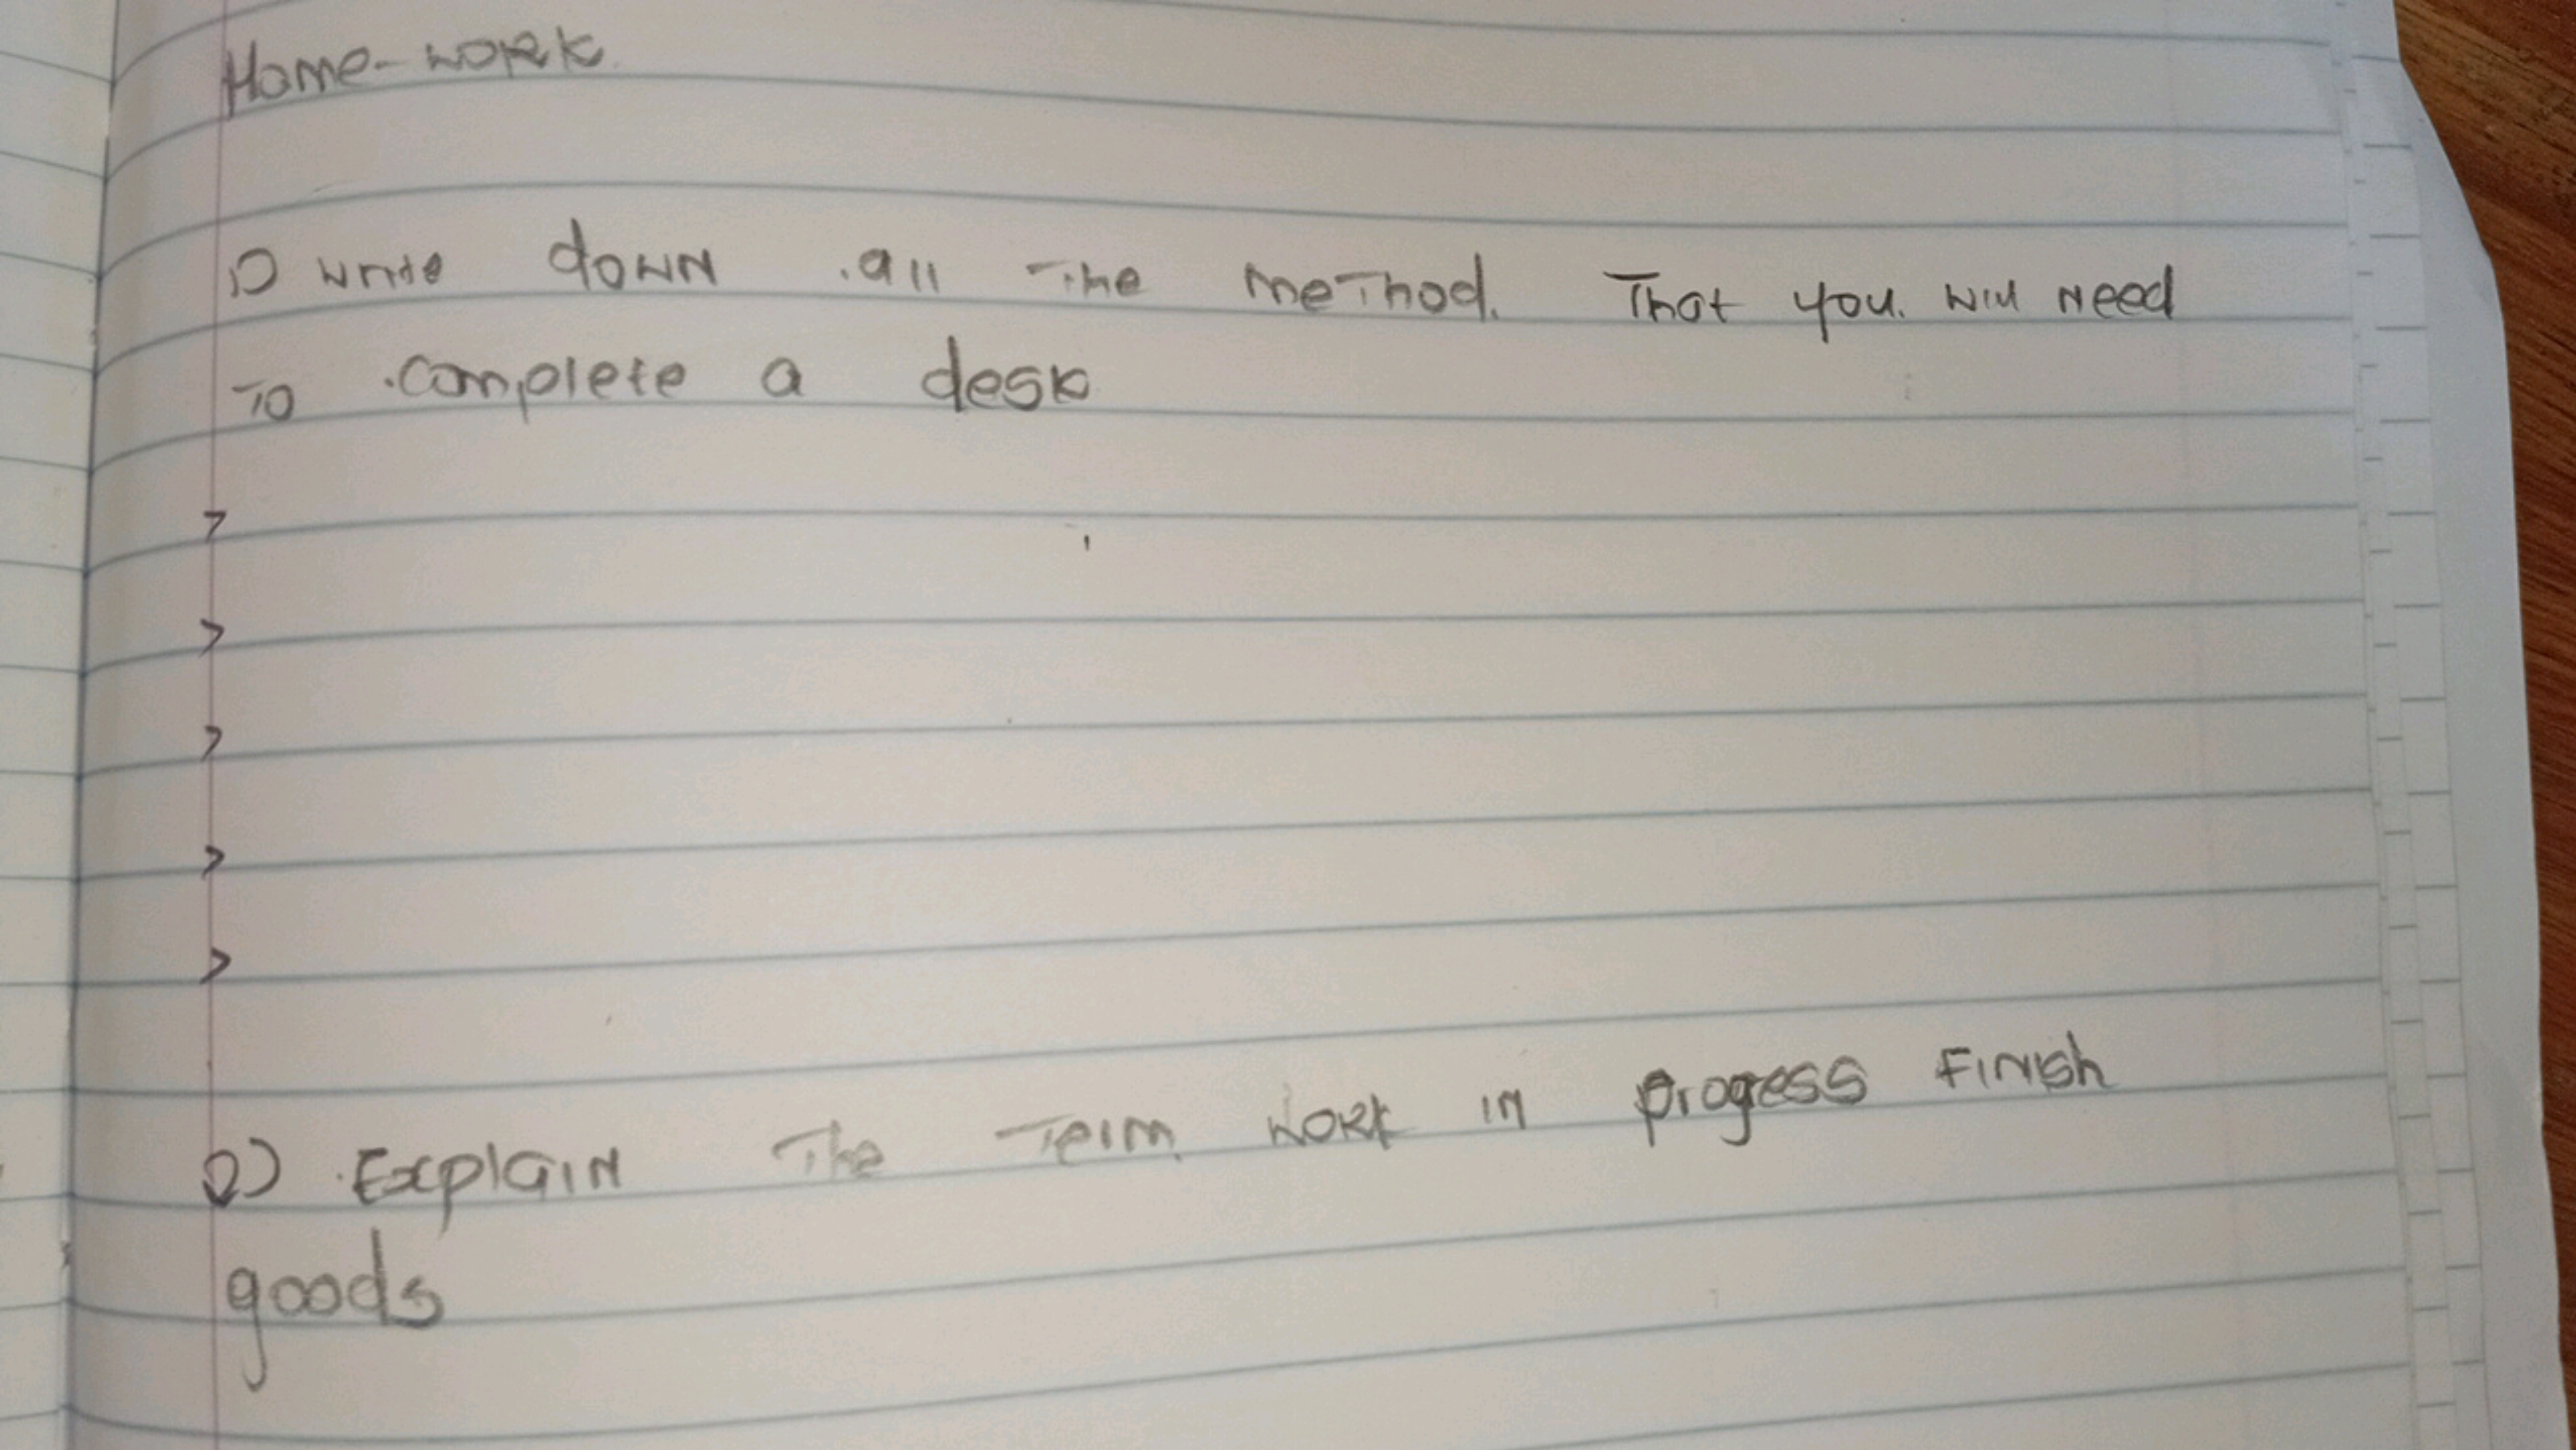 Home-work
1) write down all the method. That you will need
To complete a desk
>
>
>
>
>
2) Explain The Term work in progess Finish
goods